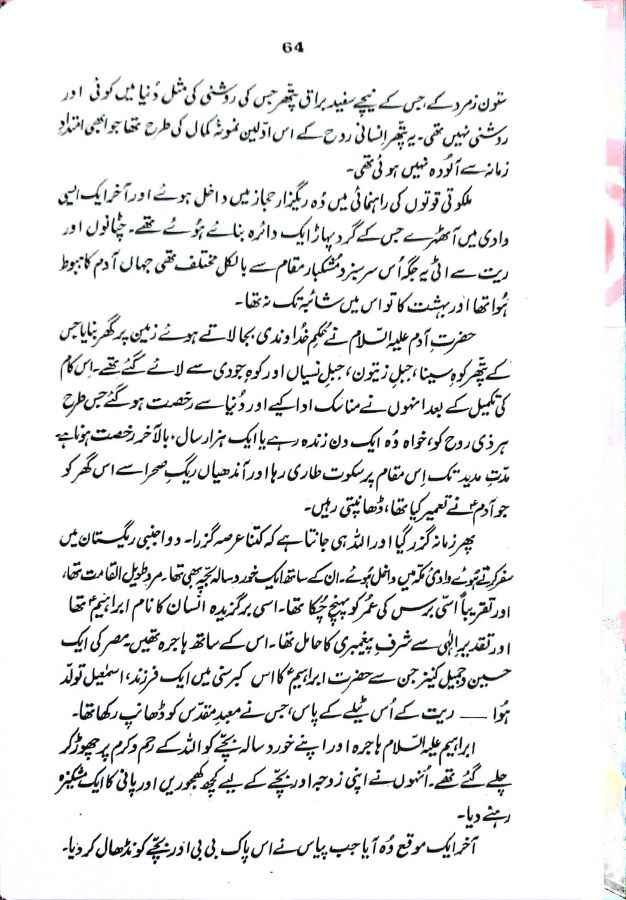 64
ستون زمرد کے، جس کے نیچے سفید براق پتھر جس کی روشنی کی مثل دُنیا میں کوئی اور
روشنی نہیں تھی۔ یہ پتھر انسانی روح کے اس اوّلین نمونۂ کمال کی طرح تھا جو ابھی امتدادِ
زمانہ سے آلودہ نہیں ہوئی تھی۔
ملکوتی قوتوں کی راہنمائی میں وُہ ریگزارِ حجاز میں داخل ہوئے اور آخر ایک ایسی
وادی میں آٹھہرے جس کے گرد پہاڑ ایک دائرہ بنائے ہُوئے تھے۔ چٹانوں اور
ریت سے اٹی یہ جگہ اُس سرسبز و مُشکبار مقام سے بالکل مختلف تھی جہاں آدم کا ہبوط
ہُوا تھا اور بہشت کا تو اس میں شائبہ تک نہ تھا۔
حضرتِ آدم علیہ السّلام نے حُکمِ خداوندی بجا لاتے ہوئے زمین پر گھر بنایا جس
کے پتھر کوہِ سینا، جبلِ زیتون، جبلِ نسیاں اور کوہِ جودی سے لائے گئے تھے۔ اِس کام
کی تکمیل کے بعد انہوں نے مناسک ادا کیے اور دُنیا سے رخصت ہو گئے جس طرح
ہر ذی روح کو، خواہ وُہ ایک دن زندہ رہے یا ایک ہزار سال، بالآخر رخصت ہونا ہے
مدّتِ مدید تک اِس مقام پر سکوت طاری رہا اور آندھیاں ریگِ صحرا سے اس گھر کو
جو آدمؑ نے تعمیر کیا تھا، ڈھانپتی رہیں۔
پھر زمانہ گزر گیا اور اللہ ہی جانتا ہے کہ کتنا عرصہ گزرا۔ دو اجنبی ریگستان میں
سفر کرتے ہُوئے وادیٔ مکّہ میں داخل ہُوئے۔ ان کے ساتھ ایک خورد سالہ بچّہ بھی تھا۔ مرد طویل القامت تھا،
اور تقریباً اسّی برس کی عمر کو پہنچ چُکا تھا۔ اسی برگزیدہ انسان کا نام ابراہیمؑ تھا
اور تقدیرِ الٰہی سے شرفِ پیغمبری کا حامل تھا۔ اس کے ساتھ ہاجرہ تھیں۔ مصر کی ایک
حسین و جمیل کنیز جن سے حضرت ابراہیمؑ کا اس کبر سنی میں ایک فرزند، اسمٰعیل تولّد
ہُوا — ریت کے اُس ٹیلے کے پاس، جس نے معبدِ مقدّس کو ڈھانپ رکھا تھا۔
ابراہیم علیہ السّلام ہاجرہ اور اپنے خورد سالہ بچّے کو اللہ کے رحم و کرم پر چھوڑ کر
چلے گئے تھے۔ اُنہوں نے اپنی زوجہ اور بچّے کے لیے کچھ کھجوریں اور پانی کا ایک مشکیزہ
رہنے دیا۔
آخر ایک موقع وُہ آیا جب پیاس نے اس پاک بی بی اور بچّے کو نڈھال کر دیا۔